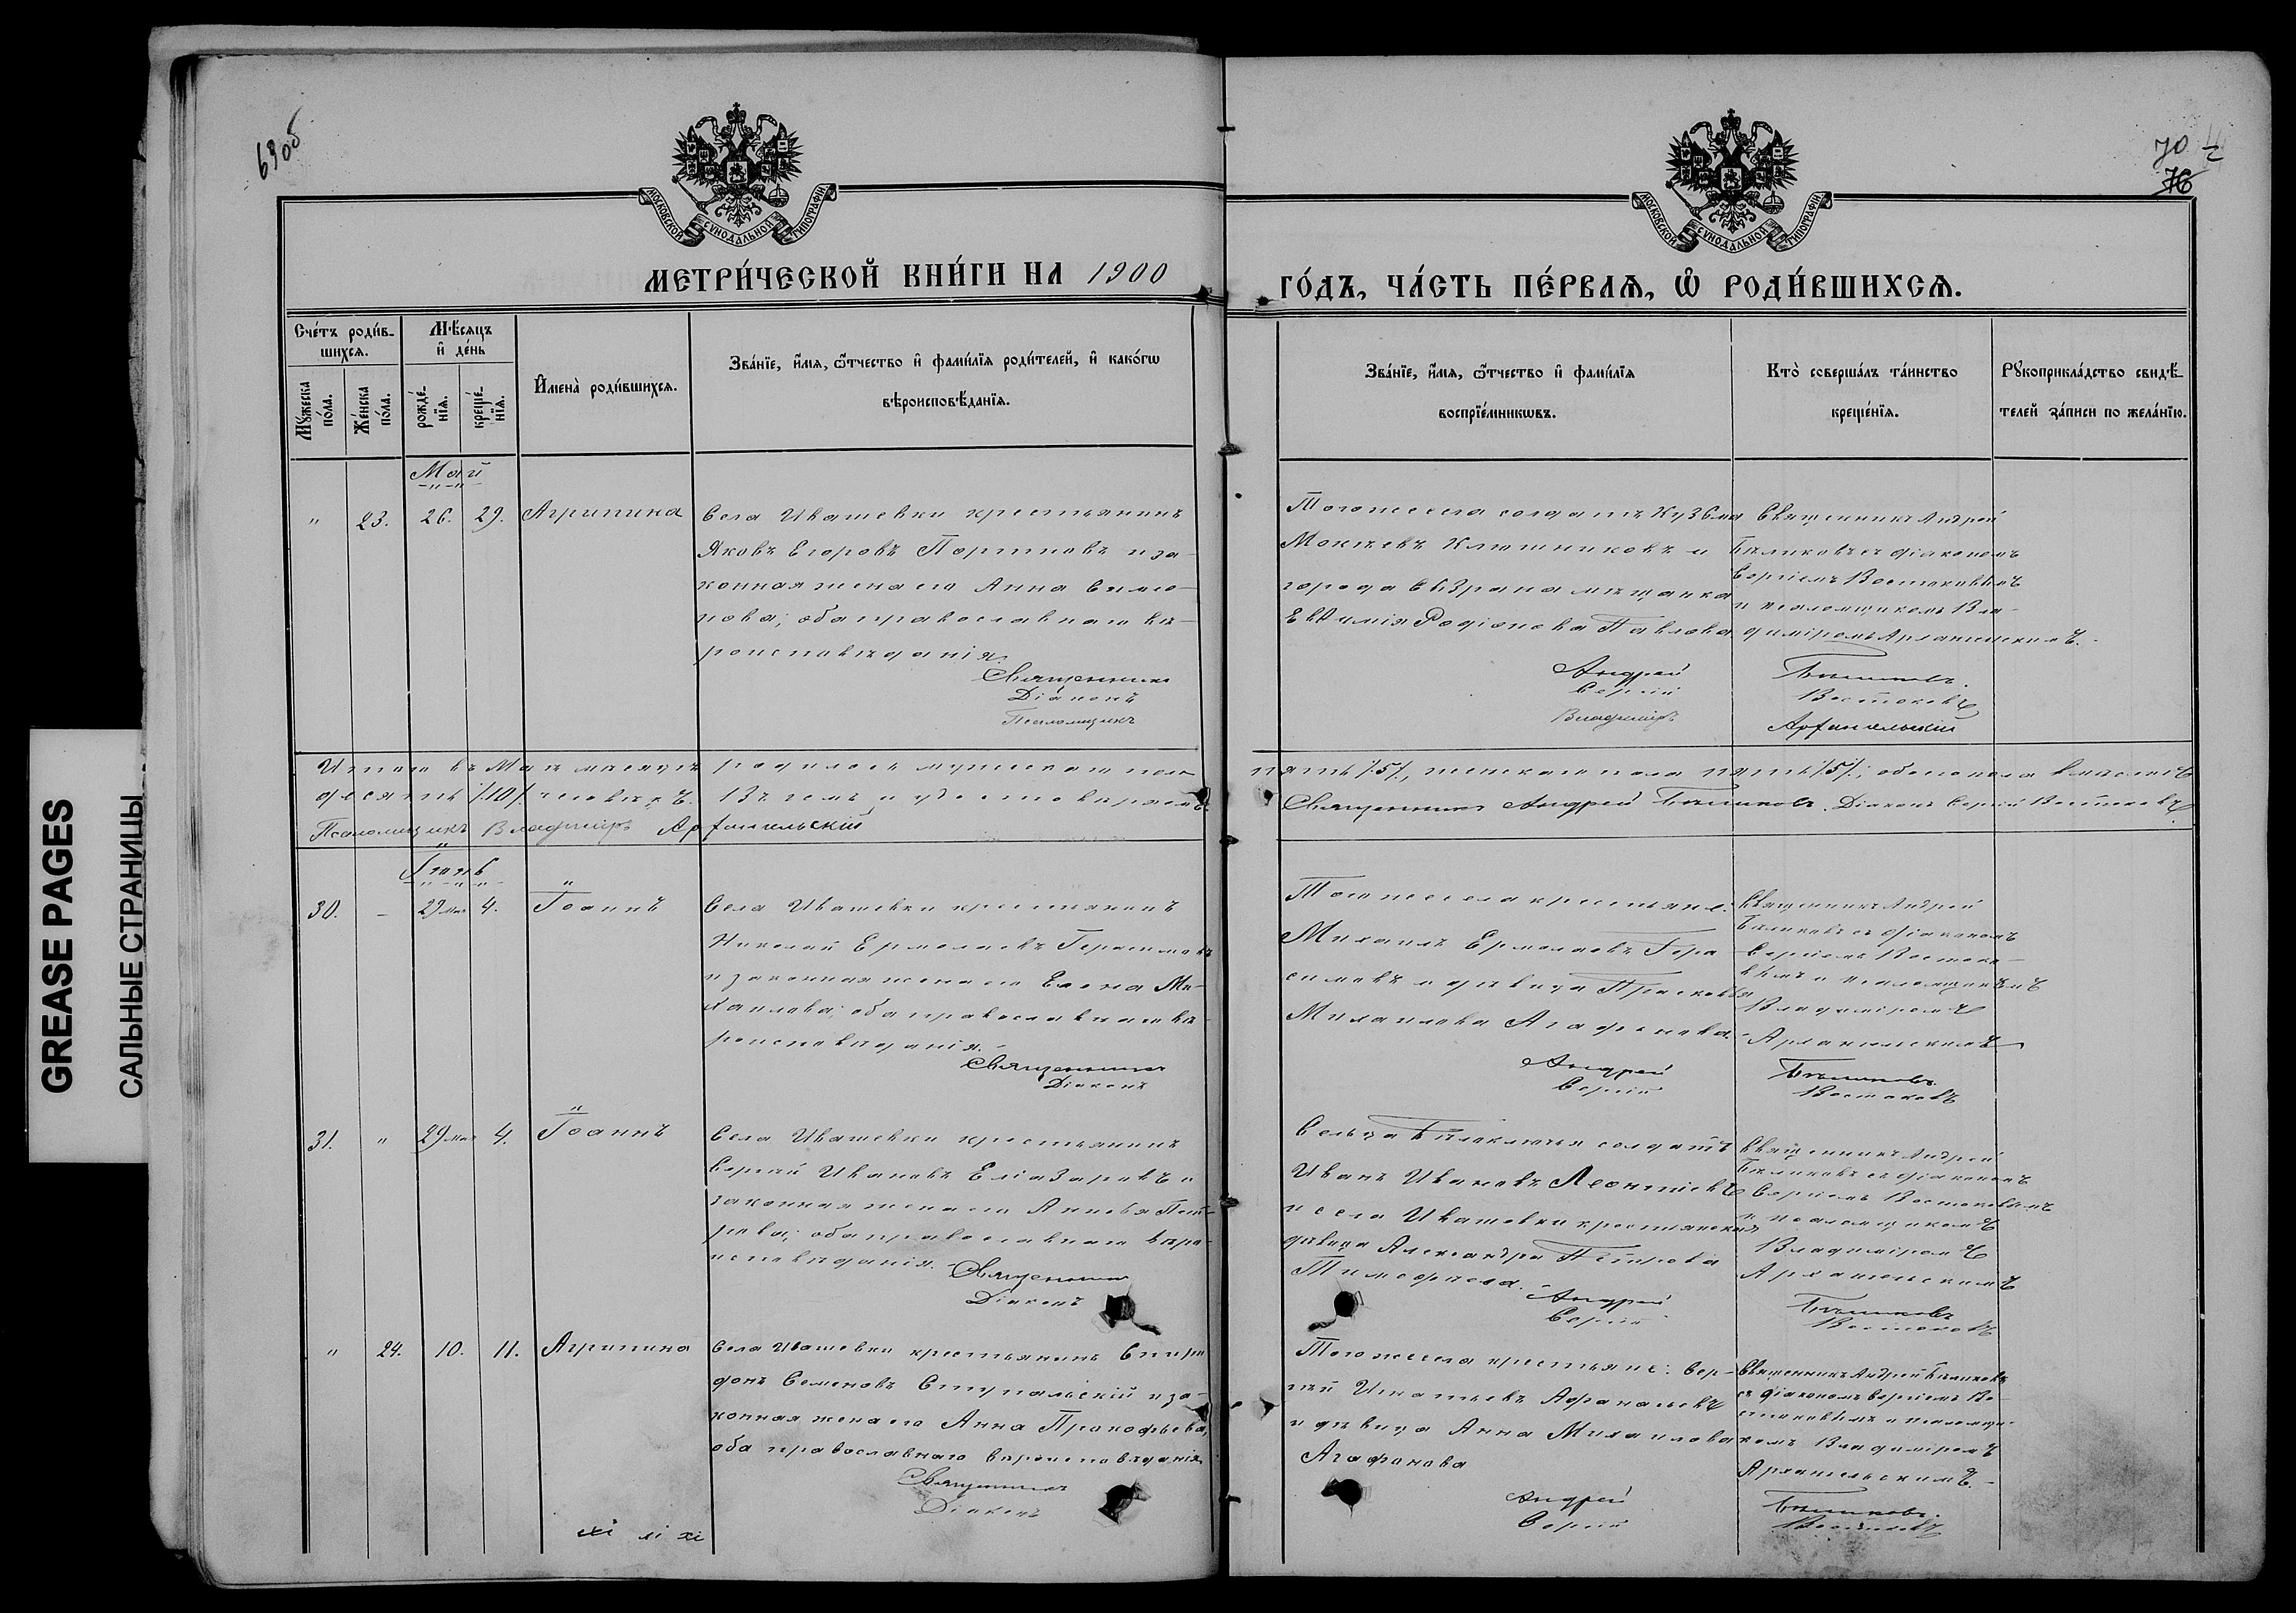 69об
70
76
МОСКОВСКОЙ СѴНОДАЛЬНОЙ ТИПОГРАФІИ
МОСКОВСКОЙ СѴНОДАЛЬНОЙ ТИПОГРАФІИ
МЕТРИ́ЧЕСКОЙ КНИ́ГИ НА 1900
ГО́ДЪ, ЧА́СТЬ ПЕ́РВАѦ, Ѡ҆ РОДИ́ВШИХСѦ.
Сче́тъ роди́в-
шихсѧ.
Мꙋ́жеска по́ла.
Же́нска по́ла.
Мѣ́сѧцъ
и҆ де́нь
рожде́-
нїѧ.
креще́-
нїѧ.
И҆мена̀ роди́вшихсѧ.
Зва́нїе, и҆́мѧ, ѻ҆́тчество и҆ фами́лїѧ роди́телей, и҆ како́гѡ
вѣроисповѣ́данїѧ.
Зва́нїе, и҆́мѧ, ѻ҆́тчество и҆ фами́лїѧ
воспрїе́мникѡвъ.
Кто̀ соверша́лъ та́инство
креще́нїѧ.
Рꙋкоприкла́дство свидѣ́-
телей за́писи по жела́нїю.
Май
" 23. 26. 29. Агрипина
Села Ивашевки крестьянинъ
Яковъ Егоровъ Портновъ и за-
конная жена его Анна Симео-
нова; оба православнаго вѣ-
роисповѣданія.
Священникъ
Діаконъ
Псаломщикъ
Тогоже села солдатъ Кузьма
Мокѣевъ Ключниковъ и
города Сызрана мѣщанка
Евѳимія Родіонова Павлова
Андрей
Сергій
Владиміръ
Священникъ Андрей
Бѣликовъ съ діакономъ
Сергіемъ Востоковымъ
и псаломщикомъ Вла-
диміромъ Архангельскимъ.
Бѣликовъ.
Востоковъ
Архангельскій
Итого въ Маѣ мѣсяцѣ родилось мужескаго пола
пять /5/, женскаго пола пять /5/; обоего пола вмѣстѣ
десять /10/ человѣкъ. Въ чемъ и удостовѣряемъ:
Священникъ Андрей Бѣликовъ. Діаконъ Сергій Востоковъ
Псаломщикъ Владиміръ Архангельскій
Іюнь
30. - 29 мая 4. Іоаннъ
Села Ивашевки крестьянинъ
Николай Ермолаевъ Герасимовъ
и законная жена его Елена Ми-
хаилова; оба православнаго вѣ-
роисповѣданія.
Священникъ
Діаконъ
Тогоже села крестьяне:
Михаилъ Ермолаевъ Гера-
симовъ и дѣвица Прасковья
Михаилова Агафонова.
Андрей
Сергій
Священникъ Андрей
Бѣликовъ съ діакономъ
Сергіемъ Востоко-
вымъ и псаломщикомъ
Владиміромъ
Архангельскимъ
Бѣликовъ.
Востоковъ
31. " 29 мая 4. Іоаннъ
Села Ивашевки крестьянинъ
Сергій Ивановъ Еліазаровъ и
законная жена его Анна Пет-
рова; оба православнаго вѣро-
исповѣданія.
Священникъ
Діаконъ
Сельца Бѣлаключья солдатъ
Иванъ Ивановъ Леонтіевъ
и села Ивашевки крестьянская
дѣвица Александра Петрова
Тимофеева.
Андрей
Сергій
Священникъ Андрей
Бѣликовъ съ діакономъ
Сергіемъ Востоковымъ
и псаломщикомъ
Владиміромъ
Архангельскимъ
Бѣликовъ
Востоковъ
" 24. 10. 11. Агрипина
Села Ивашевки крестьянинъ Спири-
донъ Семеновъ Ступальскій и за-
конная жена его Анна Прокофьева,
оба православнаго вѣроисповѣданія
Священникъ
Діаконъ
Тогоже села крестьяне: Сер-
гій Игнатьевъ Афанасьевъ
и дѣвица Анна Михаилова
Агафонова
Андрей
Сергій
Священникъ Андрей Бѣликовъ
съ діакономъ Сергіемъ Во-
стоковымъ и псаломщи-
комъ Владиміромъ
Архангельскимъ.
Бѣликовъ.
Востоковъ
GREASE PAGES
САЛЬНЫЕ СТРАНИЦЫ